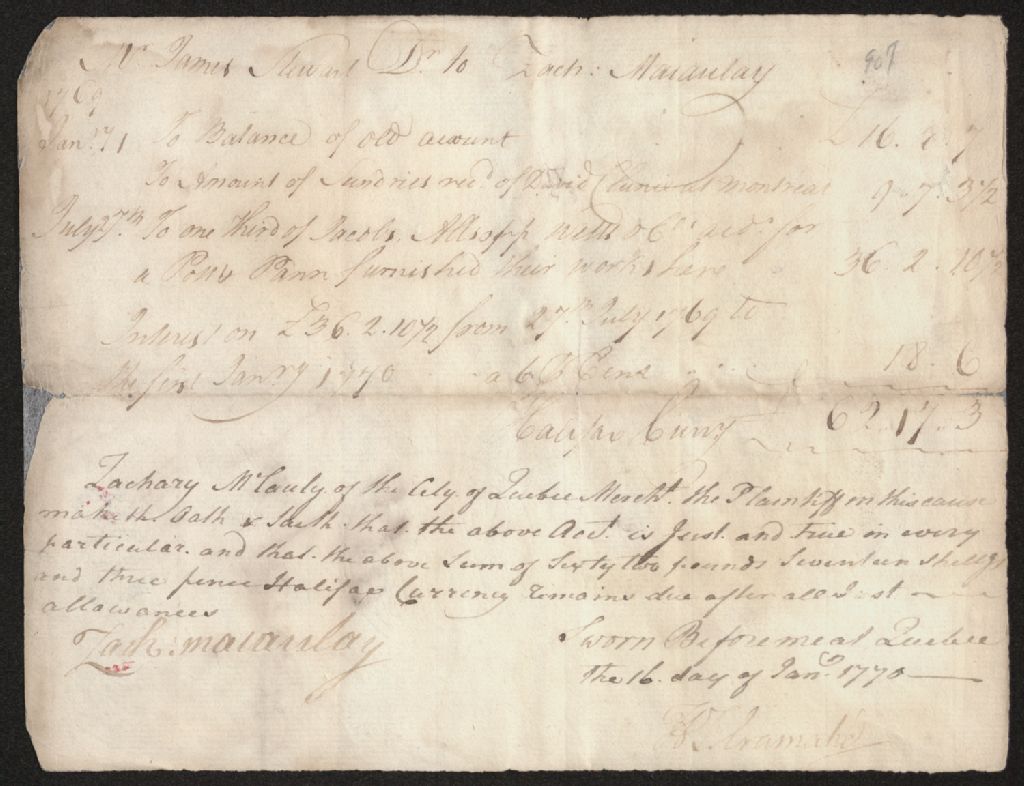 Mr James Stewart Dr to Zach: Macaulay 907
1769
Jany 1 To Balance of old account £16. 8. 7
To Amount of Sundries recd of David at Montreal 9. 7. 3½
July 27th To one third of Jacobs, Allsopp Welts & Cos acct for
a Pott & Pann furnished their works here 36. 2. 10½
Interest on £36. 2. 10½ from 27th July 1769 to
the first Janry 1770 a 6 P Cent 18. 6
Halifax Curry £ 62. 17. 3
Zachary McCauly of the City of Quebec Mercht. the Plaintiff in this cause
maketh Oath & Saith that the above Acct. is Just and true in every
particular and that the above Sum of Sixty two pounds Seventeen shillgs
and three pence Halifax Currency remains due after all Just
allowances
Zach: Macaulay Sworn Before me at Quebec
the 16. day of Jany. 1770